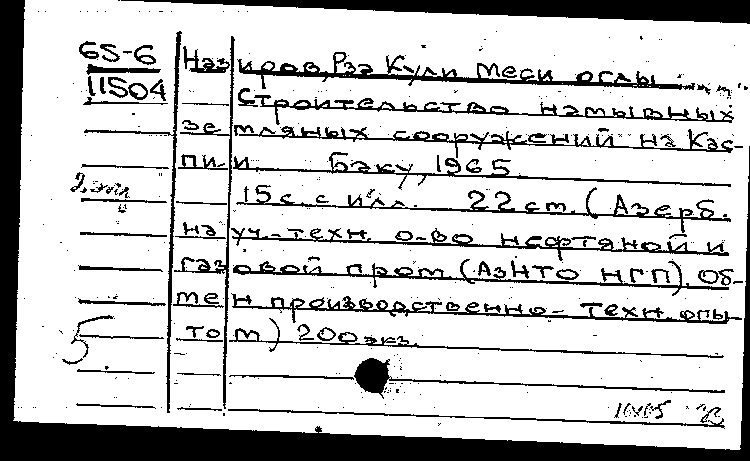 65-6
11504
Назиров, Рза Кули Меси оглы
Строительство намывных
земляных сооружений на Кас-
пии. Баку, 1965.
2 экз
15 с. с илл. 22 см. (Азерб.
науч.-техн. о-во нефтяной и
газовой пром (АзНТО НГП). Об-
мен производственно-техн. опы-
том) 200 экз.
5